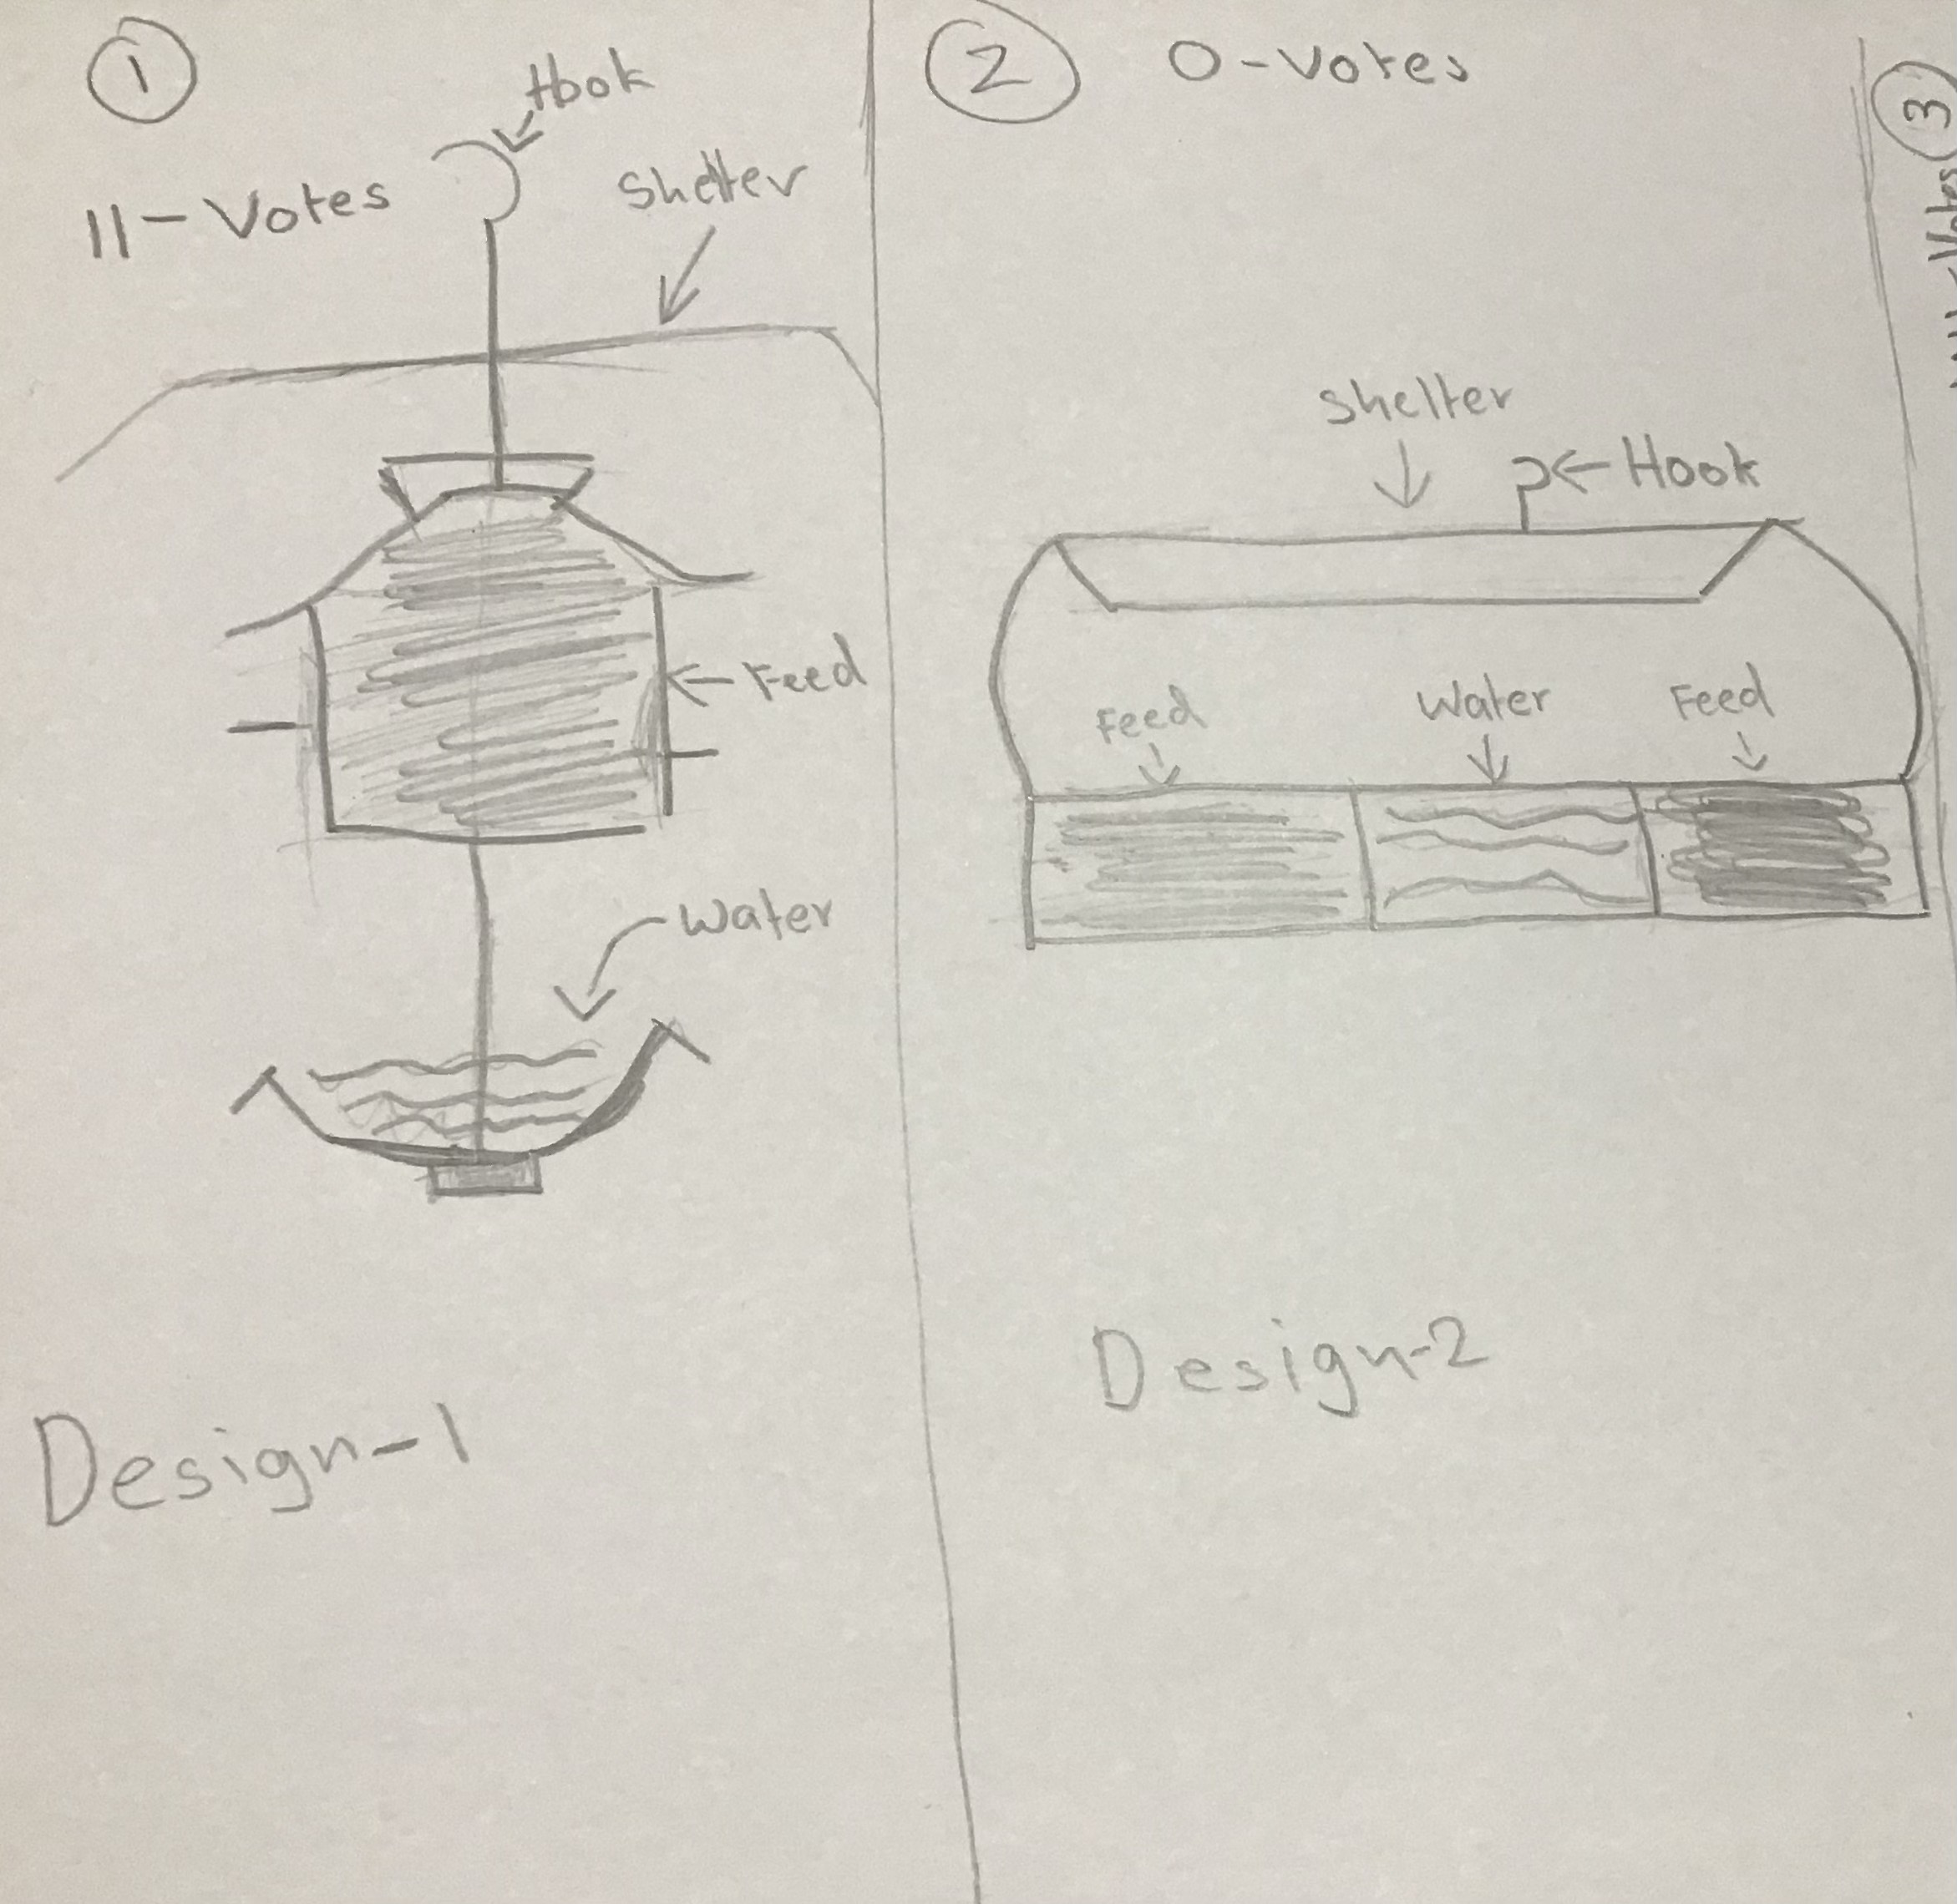 1
Hook
11-Votes
Shelter
Feed
Water
Design-1
2
0-Votes
Shelter
Hook
Feed
Water
Feed
Design-2
3
Votes